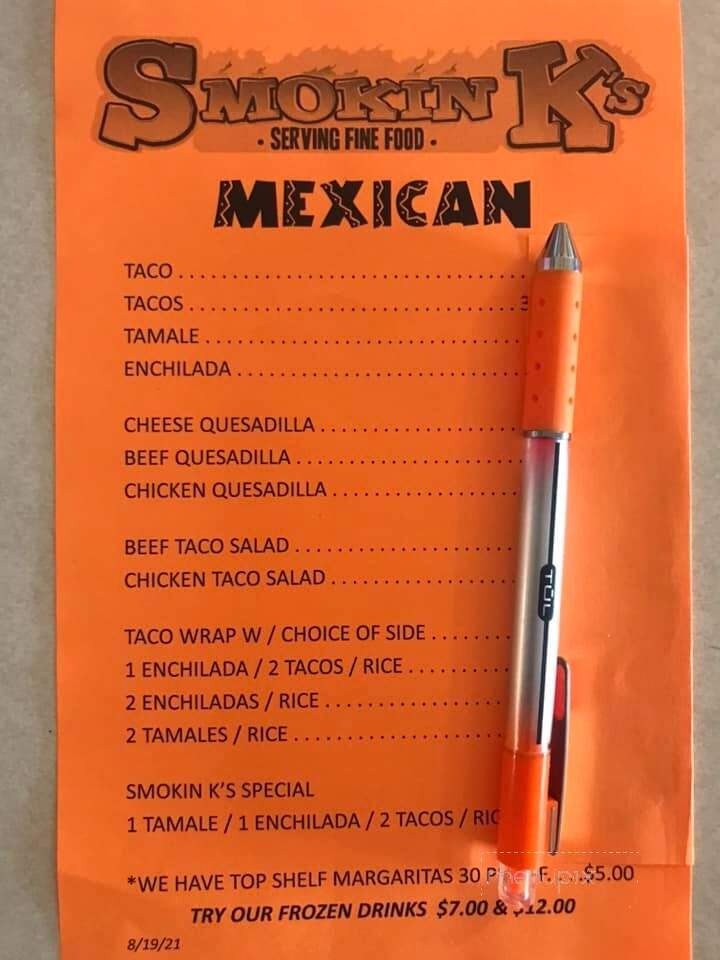 SMOKIN K's
• SERVING FINE FOOD •
MEXICAN
TACO
TACOS 3
TAMALE
ENCHILADA
CHEESE QUESADILLA
BEEF QUESADILLA
CHICKEN QUESADILLA
BEEF TACO SALAD
CHICKEN TACO SALAD
TACO WRAP W / CHOICE OF SIDE
1 ENCHILADA / 2 TACOS / RICE
2 ENCHILADAS / RICE
2 TAMALES / RICE
SMOKIN K'S SPECIAL
1 TAMALE / 1 ENCHILADA / 2 TACOS / RIC
*WE HAVE TOP SHELF MARGARITAS 30 P F. $5.00
TRY OUR FROZEN DRINKS $7.00 & $12.00
8/19/21
TUL